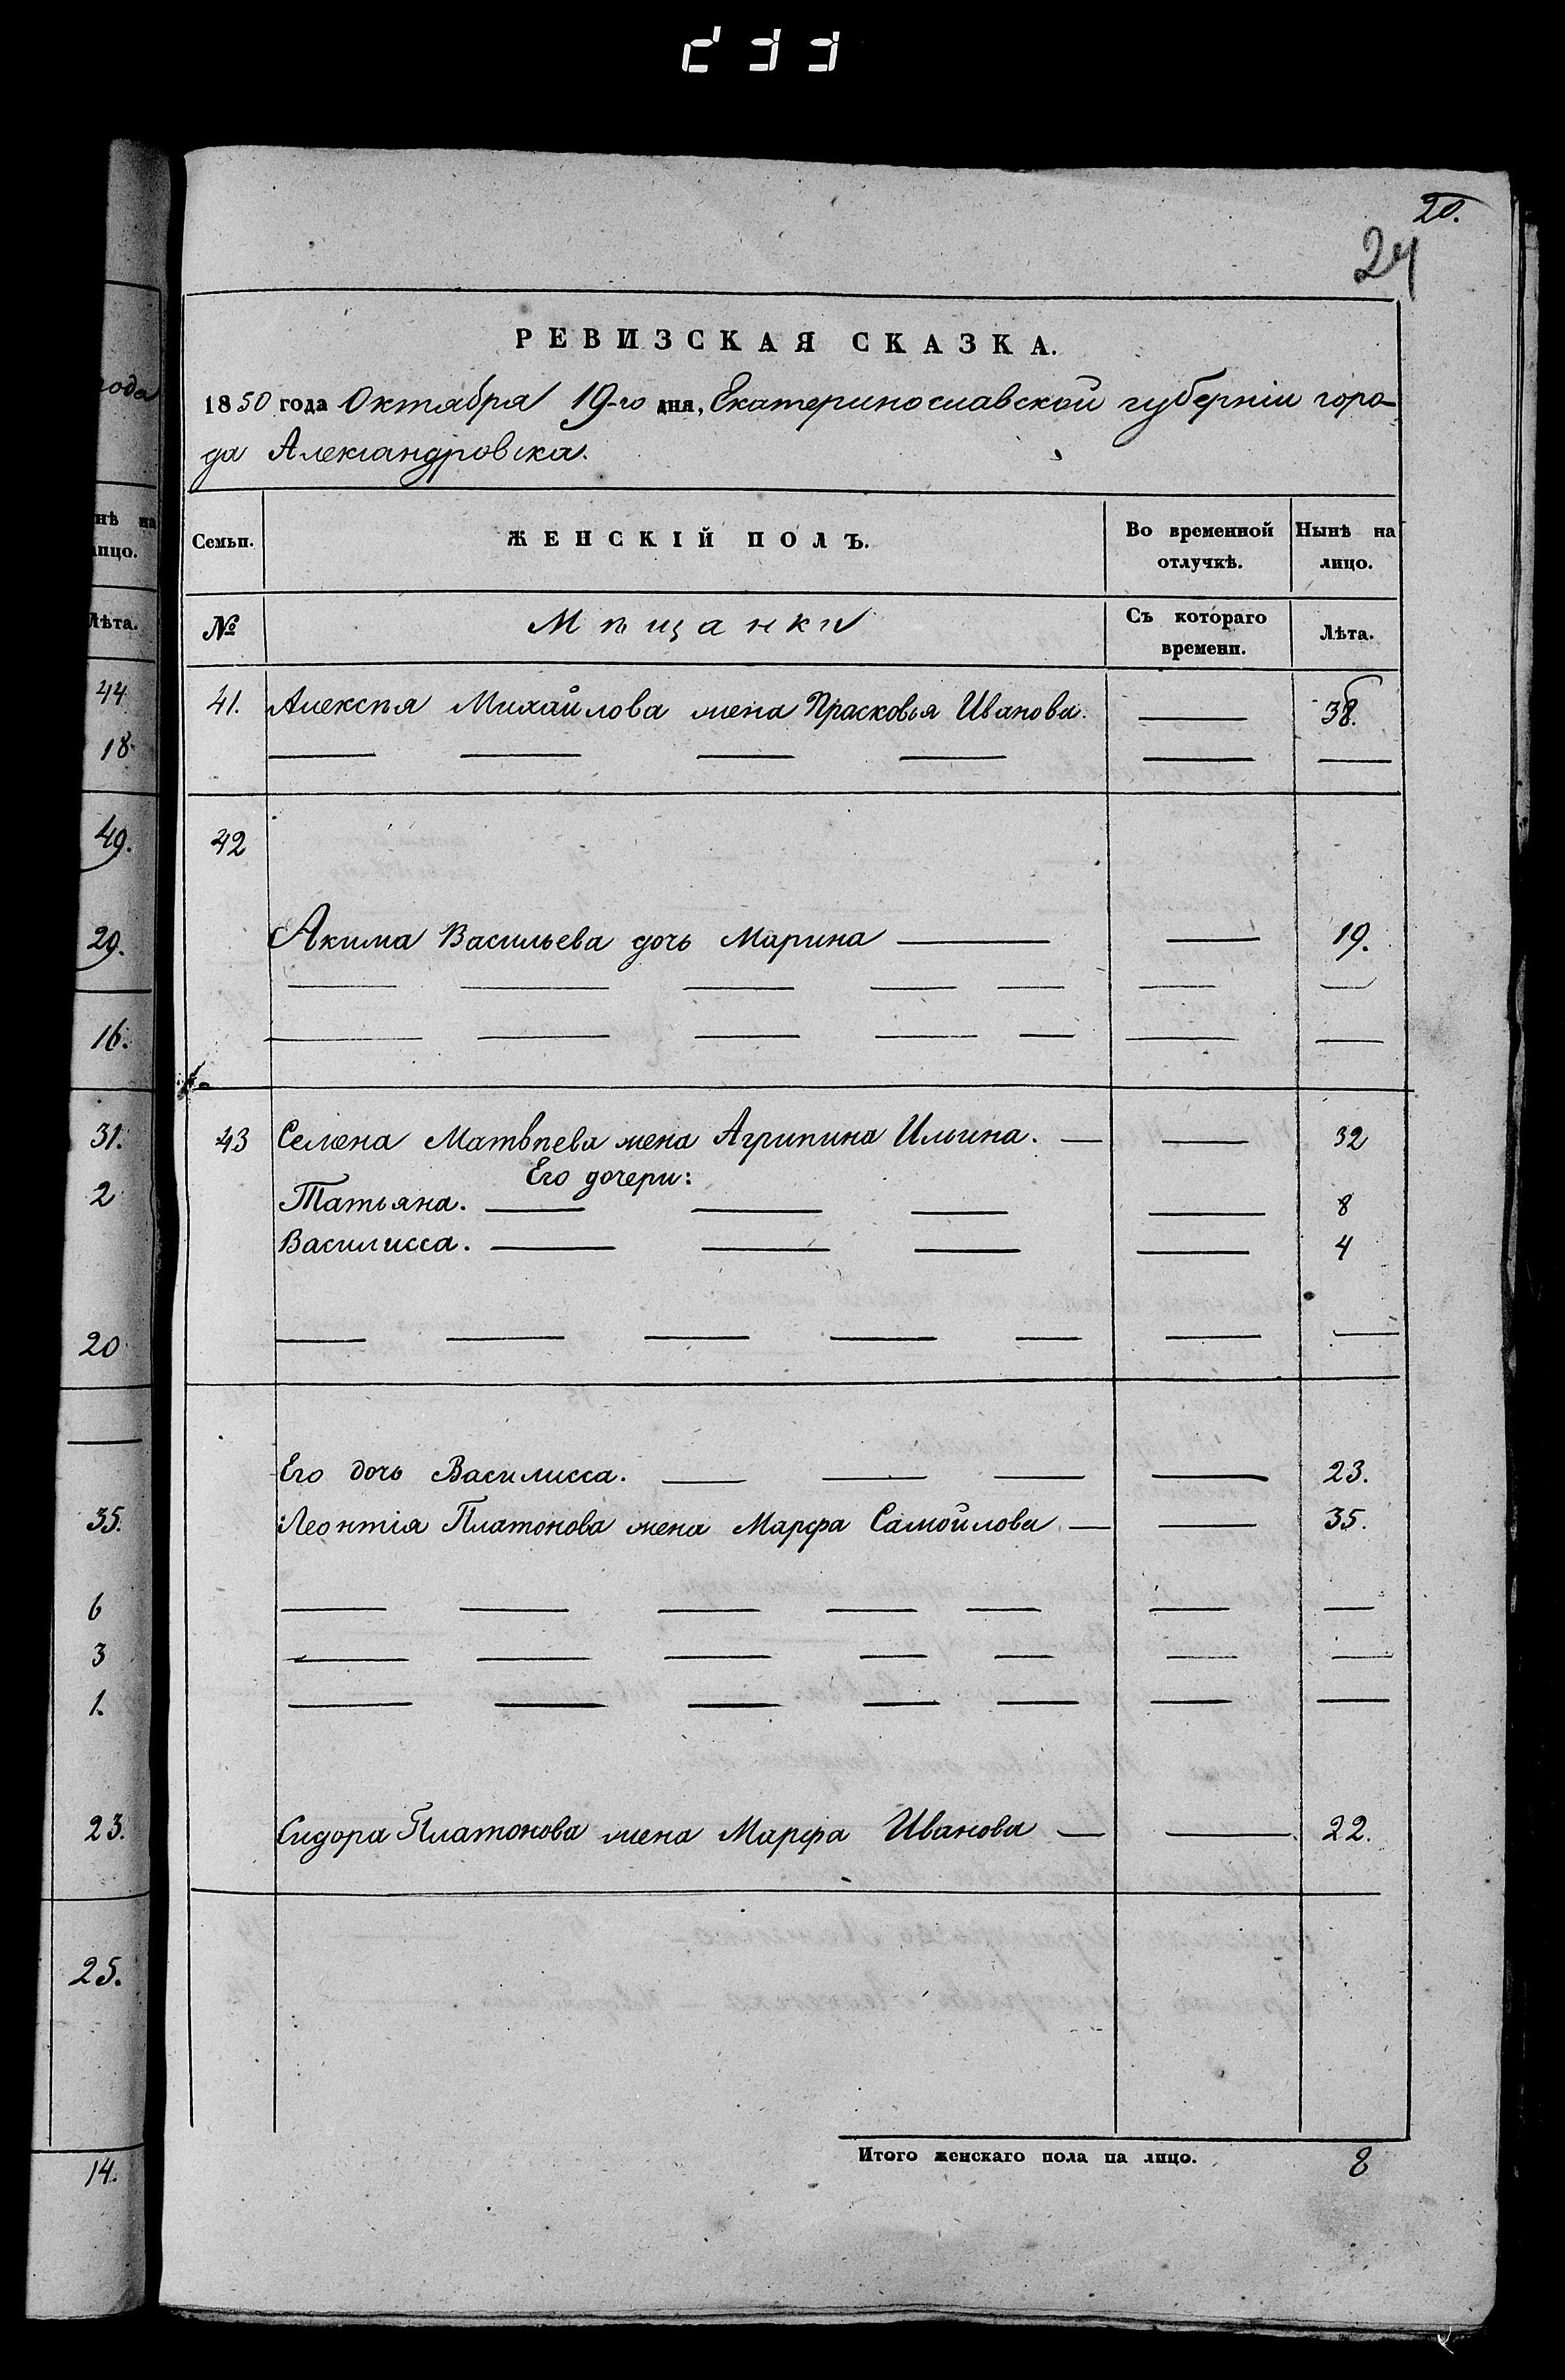 233
20.
24
РЕВИЗСКАЯ СКАЗКА.
1850 года Октября 19-го дня, Екатеринославской губерніи горо-
да Александровска.
Семьи. ЖЕНСКІЙ ПОЛЪ. Во временной отлучкѣ. Нынѣ на лицо.
№ Мѣщанки Съ котораго времени. Лѣта.
41. Алексѣя Михайлова жена Прасковья Иванова. — 38.
42
Акима Васильева дочь Марина — — 19.
43 Семена Матвѣева жена Агрипина Ильина. — — 32
Его дочери:
Татьяна. — — — — 8
Василисса. — — — — 4
Его дочь Василисса. — — — — 23.
Леонтія Платонова жена Марфа Самойлова — — 35.
Сидора Платонова жена Марфа Иванова — — 22.
Итого женскаго пола на лицо. 8
года
нѣ на
лицо.
Лѣта.
44
18
49.
29.
16.
31.
2
20
35.
6
3
1.
23.
25.
14.